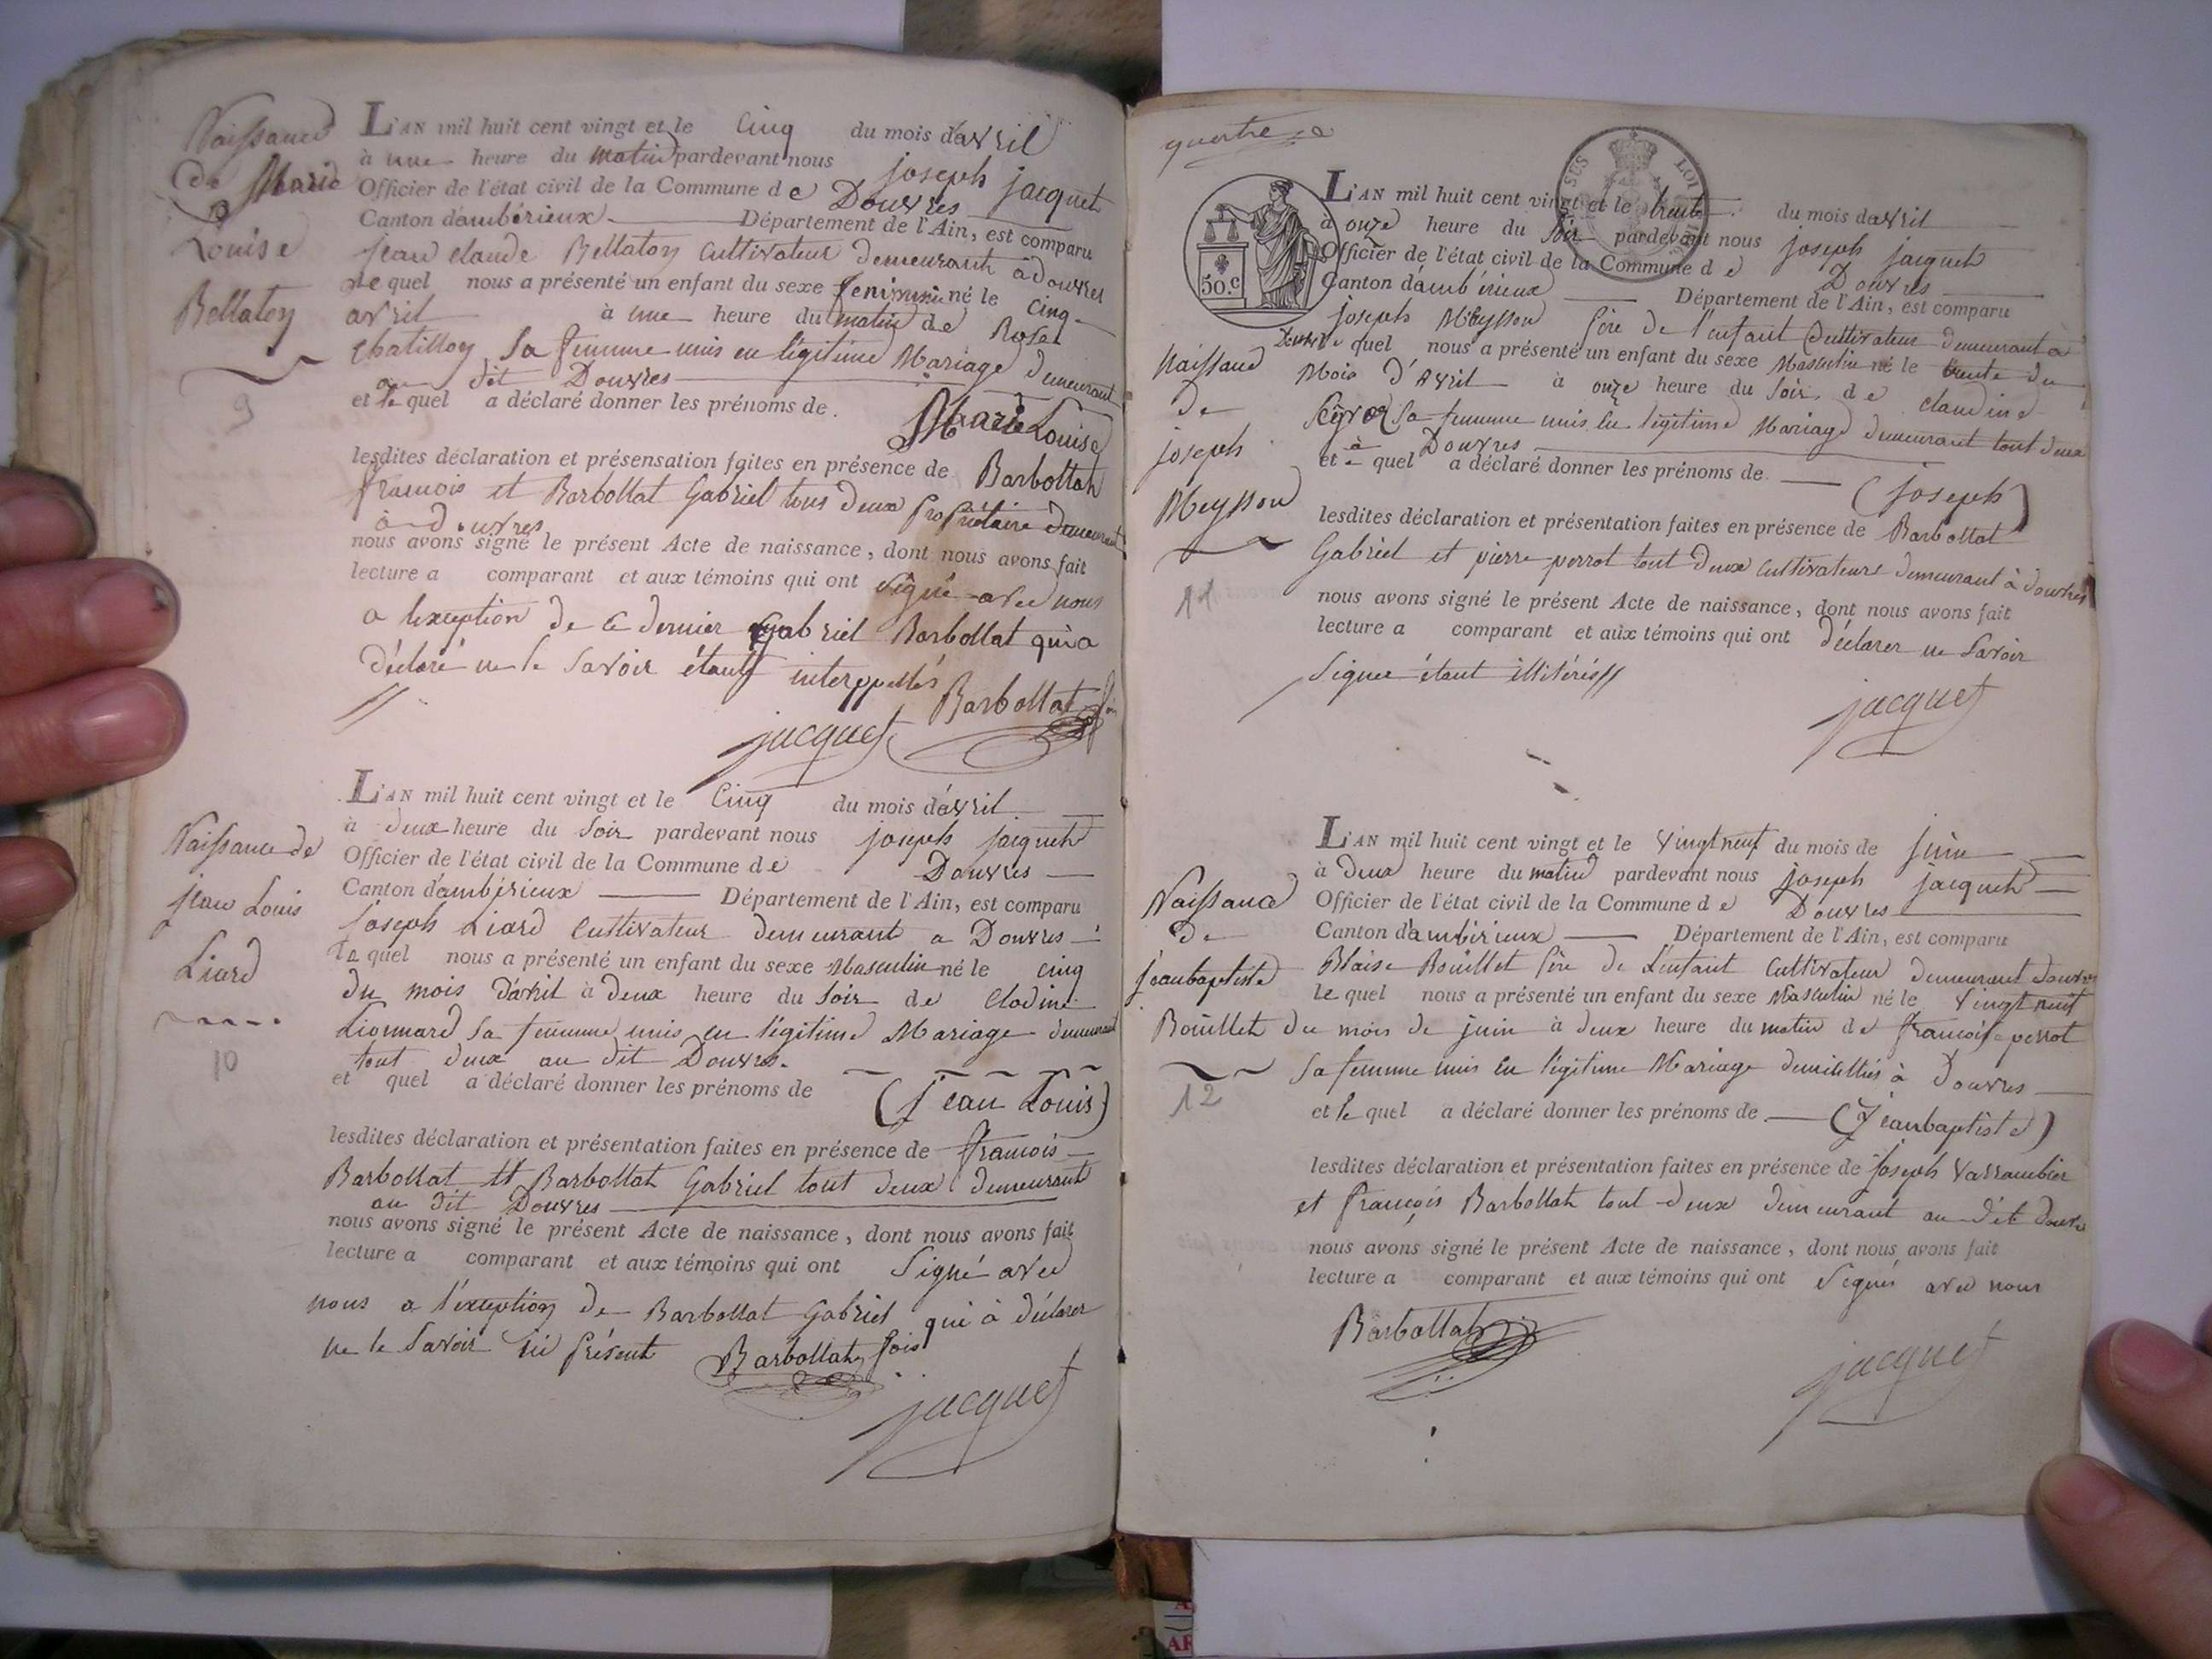 Naissance
de Marie
Louise
Bellaton
9
L'AN mil huit cent vingt et le Cinq du mois d'avril
à une heure du matin pardevant nous joseph jacquet
Officier de l'état civil de la Commune de Douvres
Canton d'ambérieux Département de l'Ain, est comparu
jean claude Bellaton Cultivateur demeurant à douvres
le quel nous a présenté un enfant du sexe feminin né le cinq
avril à une heure du matin de Rose
Chatillon sa femme unis en légitime Mariage demeurant
au dit Douvres
et le quel a déclaré donner les prénoms de Marie Louise
lesdites déclaration et présensation faites en présence de Barbollat
francois et Barbollat Gabriel tous deux Propriétaire demeurant
à douvres
nous avons signé le présent Acte de naissance, dont nous avons fait
lecture a comparant et aux témoins qui ont signé avec nous
a lexception de ce dernier Gabriel Barbollat qui a
déclaré ne le savoir étant interppellés
Barbollat
jacquet
Naissance de
jean Louis
Liard
10
L'AN mil huit cent vingt et le Cinq du mois d'avril
à deux heure du soir pardevant nous joseph jacquet
Officier de l'état civil de la Commune de Douvres
Canton d'ambérieux Département de l'Ain, est comparu
joseph Liard Cultivateur demeurant a Douvres
le quel nous a présenté un enfant du sexe Masculin né le cinq
du mois d'avril à deux heure du soir de Clodine
Lionnard sa femme unis en légitime Mariage demeurant
tout deux au dit Douvres.
et quel a déclaré donner les prénoms de (jean Louis)
lesdites déclaration et présentation faites en présence de francois
Barbollat et Barbollat Gabriel tout deux demeurant
au dit Douvres
nous avons signé le présent Acte de naissance, dont nous avons fait
lecture a comparant et aux témoins qui ont Signé avec
nous a l'exception de Barbollat Gabriel qui à déclarer
ne le Savoir Barbollat fois
jacquet
SES LOI
50.c
Naissance
de
joseph
Meysson
11
L'AN mil huit cent vingt et le trente du mois davril
à onze heure du soir pardevant nous joseph jacquet
Officier de l'état civil de la Commune de Douvres
Canton d'ambérieux Département de l'Ain, est comparu
joseph Meysson Père de l'enfant Cultivateur demeurant à
Douvres le quel nous a présenté un enfant du sexe Masculin né le trente du
Mois d'Avril à onze heure du soir de claudine
sa femme unis en légitime Mariage demeurant tout deux
à Douvres
et quel a déclaré donner les prénoms de (joseph)
lesdites déclaration et présentation faites en présence de Barbollat
Gabriel et pierre perrot tout deux cultivateurs demeurant à douvres
nous avons signé le présent Acte de naissance, dont nous avons fait
lecture a comparant et aux témoins qui ont déclarer ne Savoir
Signer étant illitérés
jacquet
Naissance
de
jeanbaptiste
Bouillet
12
L'AN mil huit cent vingt et le vingt neuf du mois de juin
à deux heure du matin pardevant nous joseph jacquet
Officier de l'état civil de la Commune de Douvres
Canton d'ambérieux Département de l'Ain, est comparu
Blaise Bouillet Père de L'enfant Cultivateur demeurant douvres
le quel nous a présenté un enfant du sexe Masculin né le vingt neuf
du mois de juin à deux heure du matin de francoise perrot
sa femme unis en légitime Mariage domicilliés à Douvres
et le quel a déclaré donner les prénoms de (Jeanbaptiste)
lesdites déclaration et présentation faites en présence de joseph Varrambier
et françois Barbollat tout deux demeurant au dit douvres
nous avons signé le présent Acte de naissance, dont nous avons fait
lecture a comparant et aux témoins qui ont Signés avec nous
Barbollat
jacquet